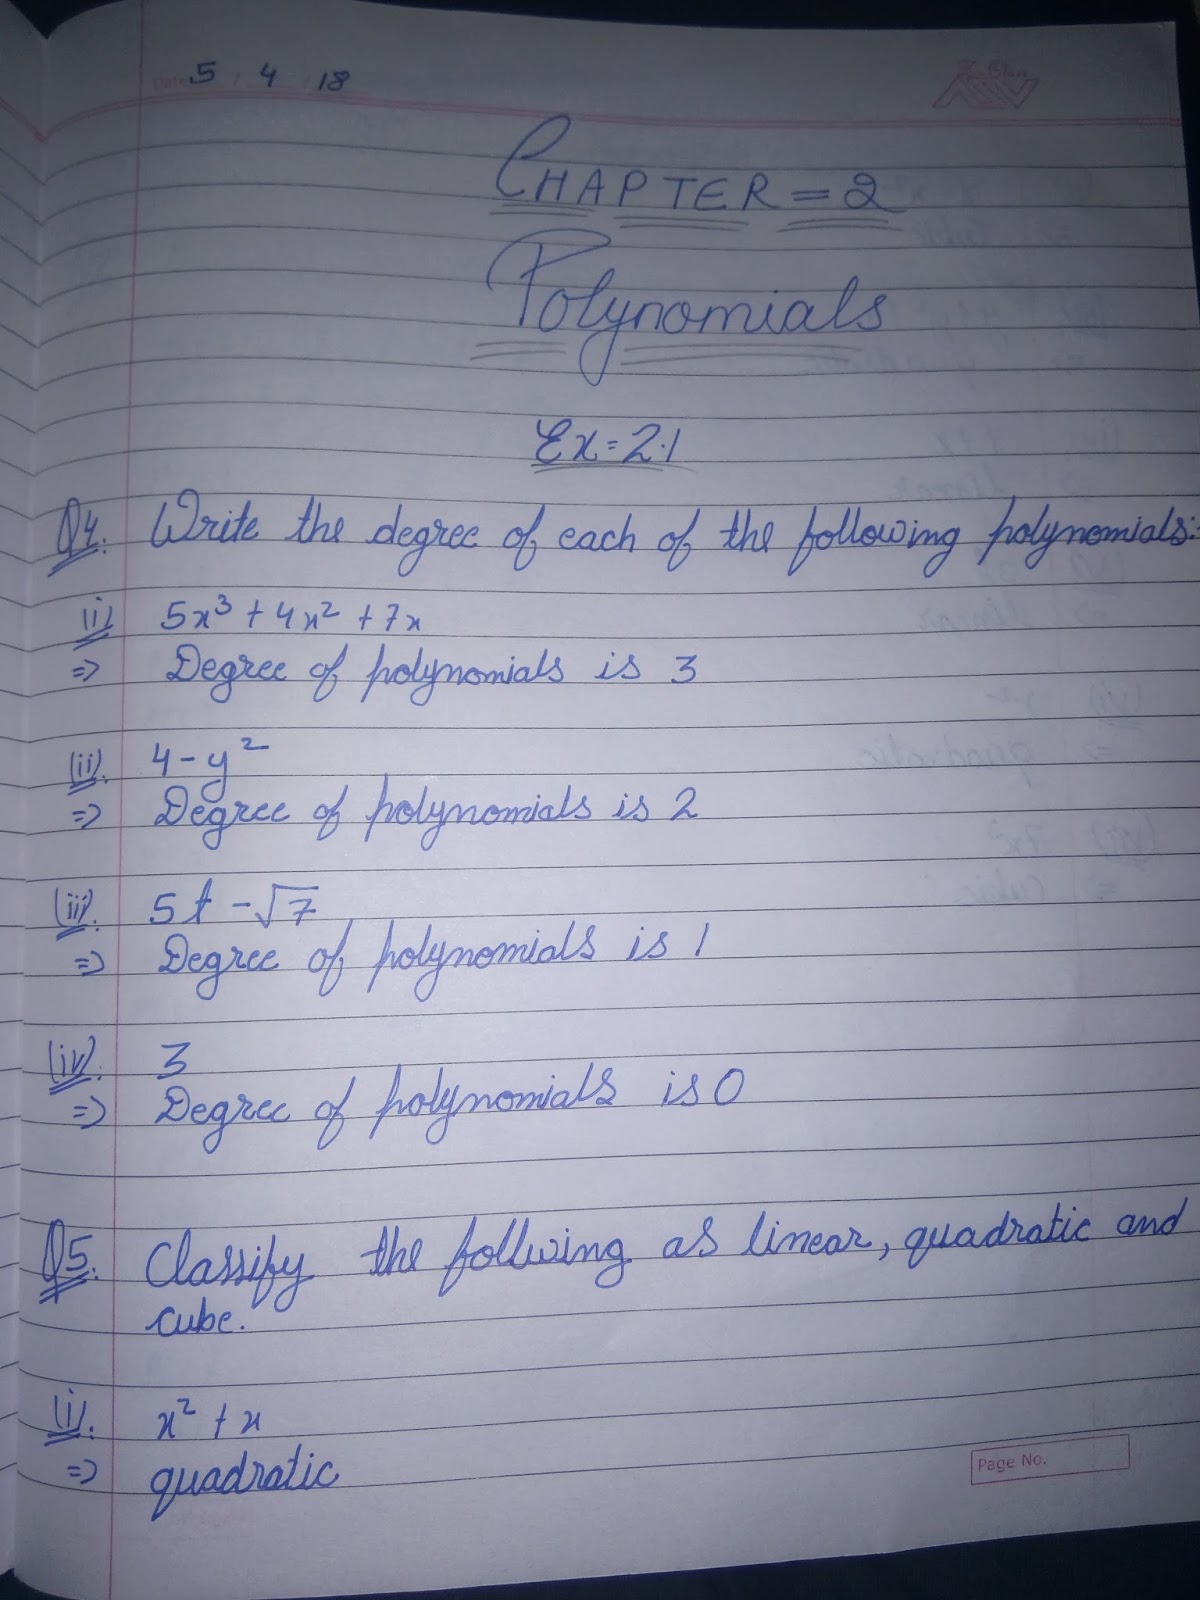 Date 5 / 4 / 18
CHAPTER = 2
Polynomials
Ex = 2.1
Q4. Write the degree of each of the following polynomials:
(i) 5x³ + 4x² + 7x
=> Degree of polynomials is 3
(ii). 4 - y²
=> Degree of polynomials is 2
(iii). 5t - √7
=> Degree of polynomials is 1
(iv). 3
=> Degree of polynomials is 0
Q5. Classify the follwing as linear, quadratic and
cube.
(i). x² + x
=> quadratic
Page No.